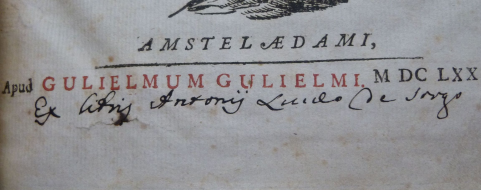 AMSTELÆDAMI,
Apud GULIELMUM GULIELMI. M DC LXX
Ex libris Antonij de Sorgo